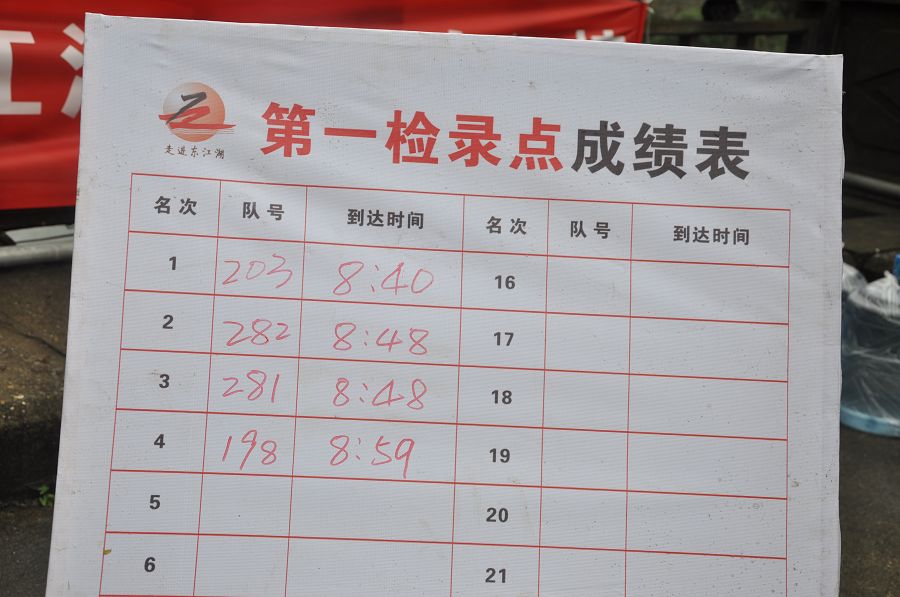 江
走进东江湖
第一检录点成绩表
名次 队号 到达时间 名次 队号 到达时间
1 203 8:40 16
2 282 8:48 17
3 281 8:48 18
4 198 8:59 19
5 20
6 21